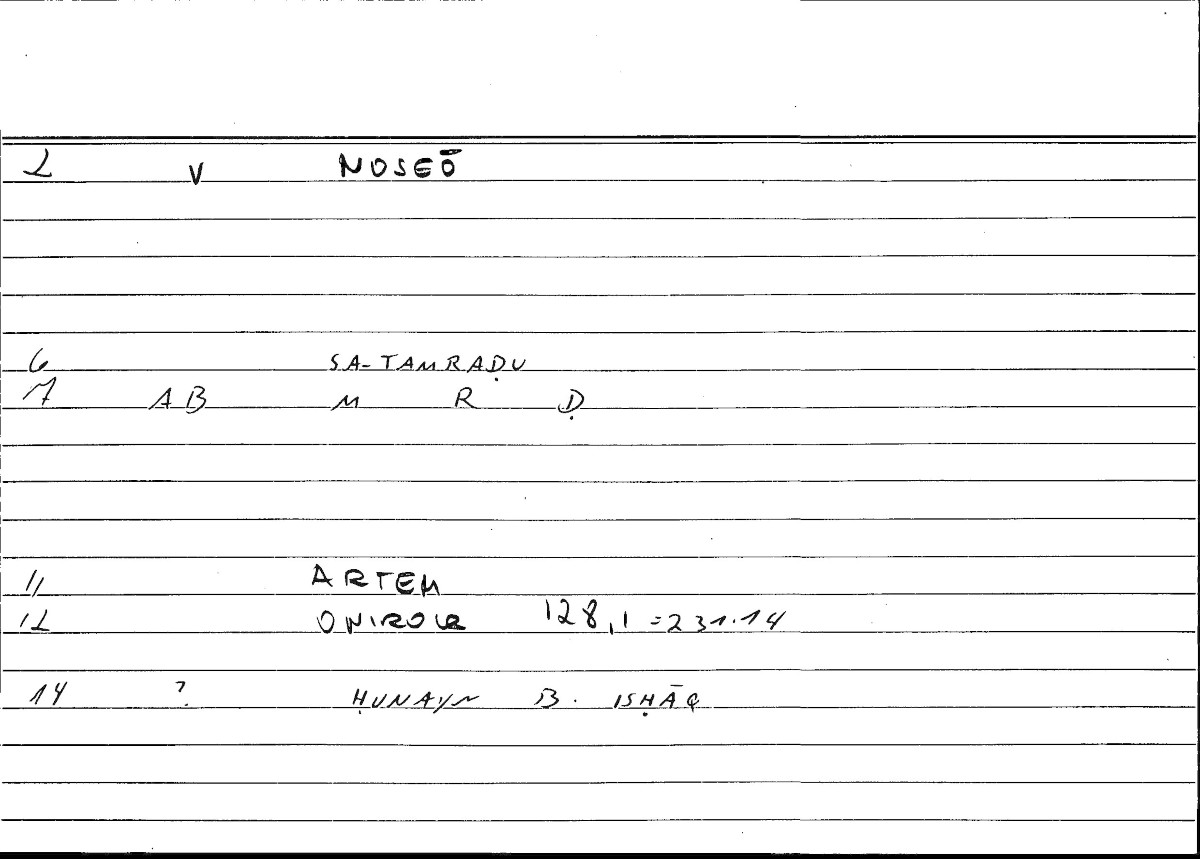 2 V NOSEŌ
6 SA-TAMRAḌU
7 AB M R Ḍ
11 ARTEM
12 ONIROCR 128,1 = 231.14
14 ? ḤUNAYN B. ISḤĀQ